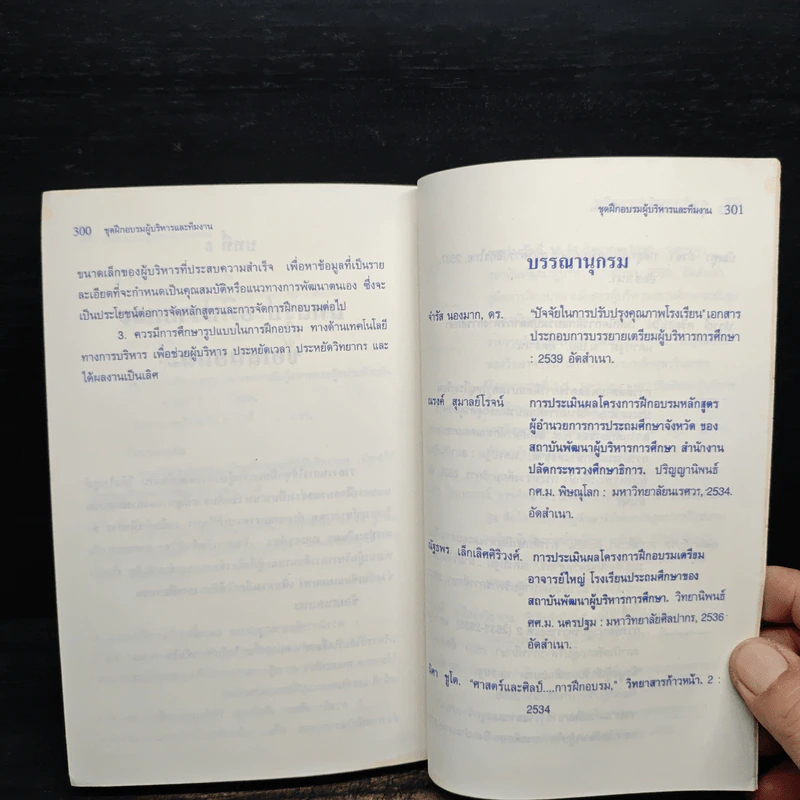 300 ชุดฝึกอบรมผู้บริหารและทีมงาน
ขนาดเล็กของผู้บริหารที่ประสบความสำเร็จ เพื่อหาข้อมูลที่เป็นราย
ละเอียดที่จะกำหนดเป็นคุณสมบัติหรือแนวทางการพัฒนาตนเอง ซึ่งจะ
เป็นประโยชน์ต่อการจัดหลักสูตรและการจัดการฝึกอบรมต่อไป
3. ควรมีการศึกษารูปแบบในการฝึกอบรม ทางด้านเทคโนโลยี
ทางการบริหาร เพื่อช่วยผู้บริหาร ประหยัดเวลา ประหยัดวิทยากร และ
ได้ผลงานเป็นเลิศ
ชุดฝึกอบรมผู้บริหารและทีมงาน 301
บรรณานุกรม
จำรัส นองมาก, ดร. "ปัจจัยในการปรับปรุงคุณภาพโรงเรียน" เอกสาร
ประกอบการบรรยายเตรียมผู้บริหารการศึกษา
: 2539 อัดสำเนา.
ณรงค์ สุมาลย์โรจน์ การประเมินผลโครงการฝึกอบรมหลักสูตร
ผู้อำนวยการการประถมศึกษาจังหวัด ของ
สถาบันพัฒนาผู้บริหารการศึกษา สำนักงาน
ปลัดกระทรวงศึกษาธิการ. ปริญญานิพนธ์
กศ.ม. พิษณุโลก : มหาวิทยาลัยนเรศวร, 2534.
อัดสำเนา.
ณัฐธพร เล็กเลิศศิริวงศ์. การประเมินผลโครงการฝึกอบรมเตรียม
อาจารย์ใหญ่ โรงเรียนประถมศึกษาของ
สถาบันพัฒนาผู้บริหารการศึกษา. วิทยานิพนธ์
ศศ.ม. นครปฐม : มหาวิทยาลัยศิลปากร, 2536
อัดสำเนา.
ชูโต. "ศาสตร์และศิลป์....การฝึกอบรม," วิทยาสารก้าวหน้า. 2 :
2534